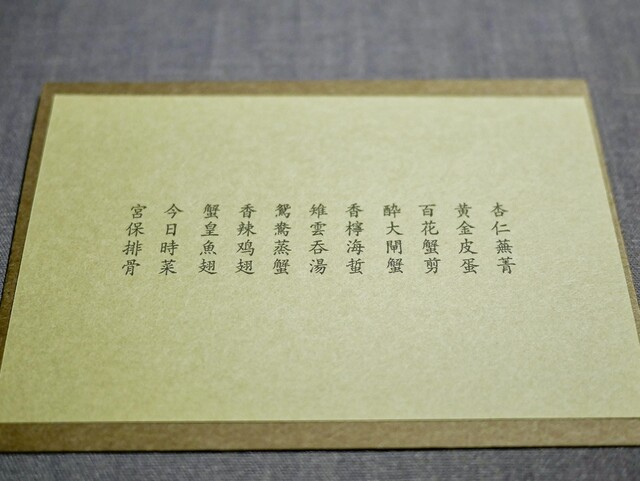 杏仁蕪菁
黃金皮蛋
百花蟹剪
醉大閘蟹
香檸海蜇
雉雲吞湯
鴛鴦蒸蟹
香辣鸡翅
蟹皇魚翅
今日時菜
宮保排骨